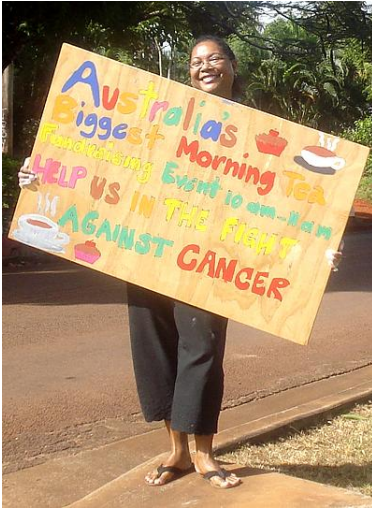 Australia's
Biggest Morning Tea
Fundraising Event 10 am-11am
HELP US IN THE FIGHT
AGAINST CANCER